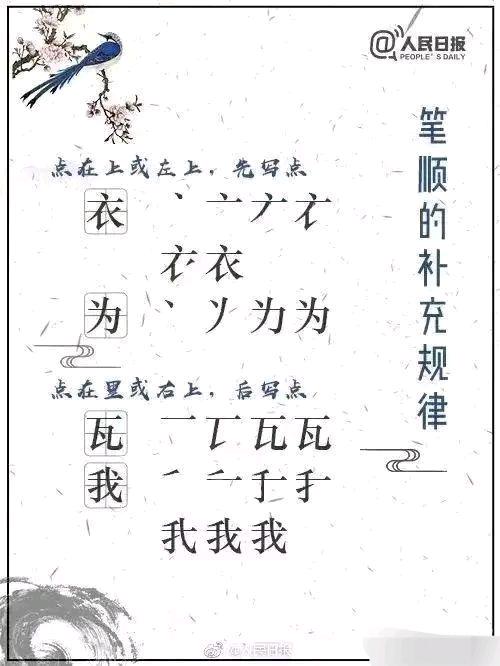 @人民日报
PEOPLE'S DAILY
笔顺的补充规律
点在上或左上，先写点
衣 丶 亠
衣
为 丶 为 为
点在里或右上，后写点
瓦 一 瓦 瓦
我
我 我
@人民日报